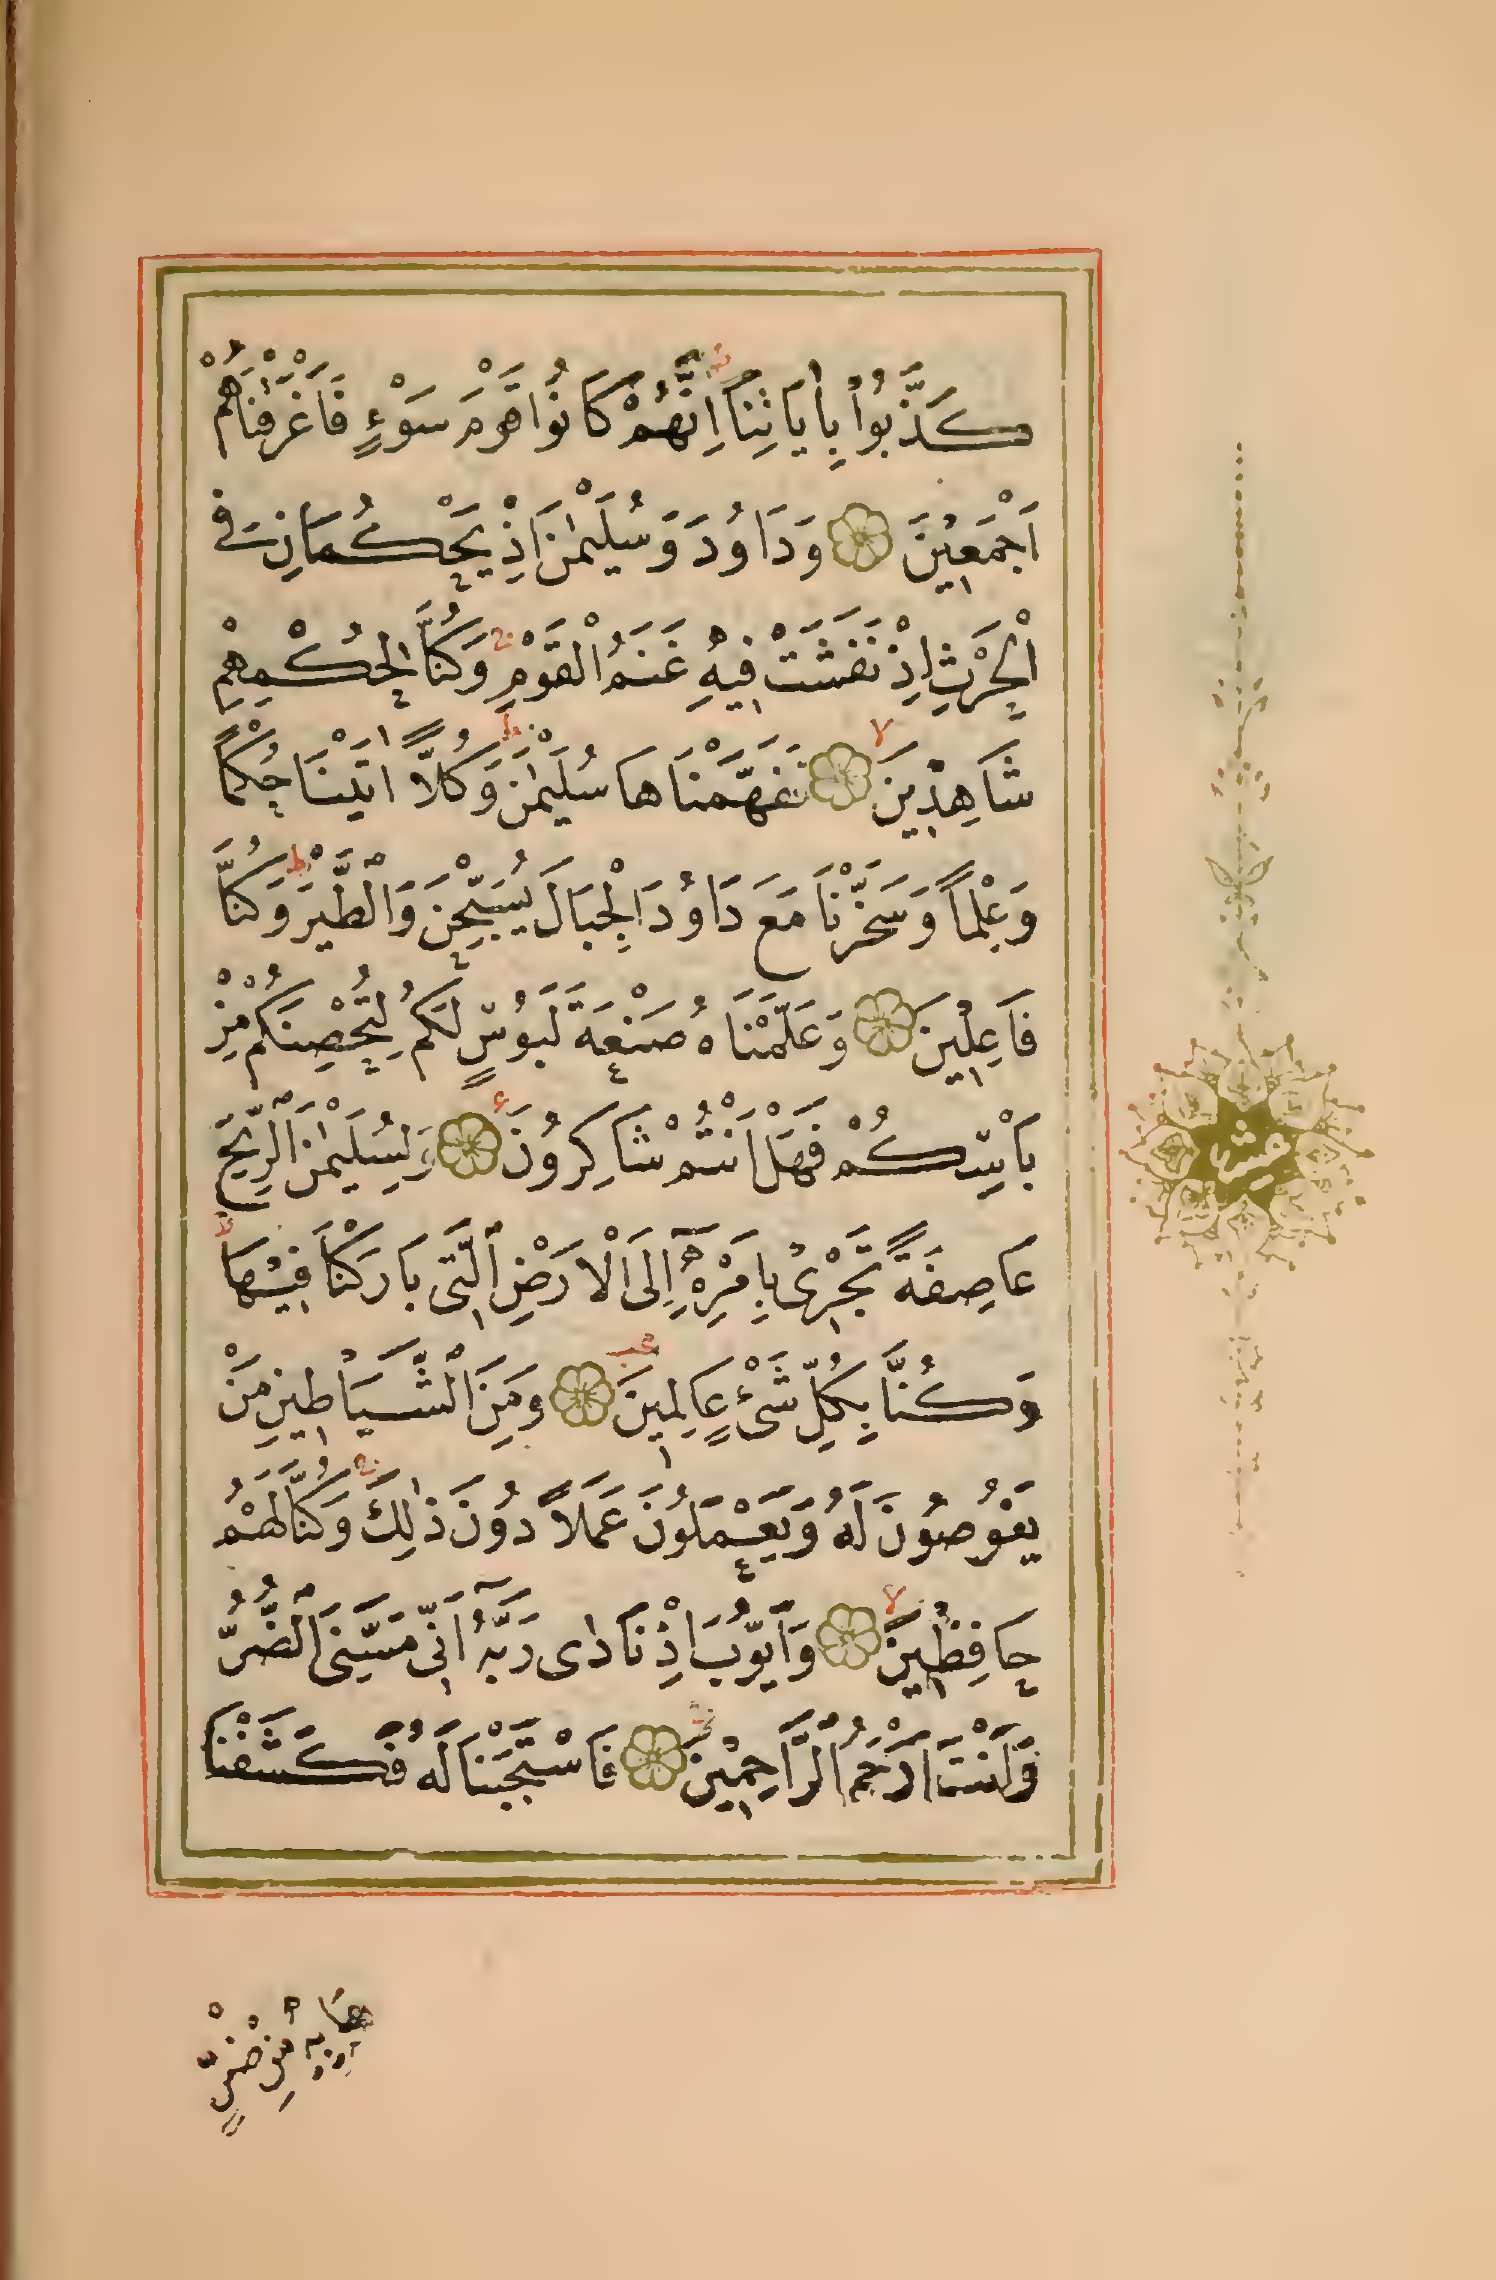 كَذَّبُوا بِاٰيَاتِنَا اِنَّهُمْ كَانُوا قَوْمَ سَوْءٍ فَاَغْرَقْنَاهُمْ
اَجْمَعِينَ وَدَاوُدَ وَسُلَيْمٰنَ اِذْ يَحْكُمَانِ فِى
الْحَرْثِ اِذْ نَفَشَتْ فِيهِ غَنَمُ الْقَوْمِ وَكُنَّا لِحُكْمِهِمْ
شَاهِدِينَ فَفَهَّمْنَاهَا سُلَيْمٰنَ وَكُلًّا اٰتَيْنَا حُكْمًا
وَعِلْمًا وَسَخَّرْنَا مَعَ دَاوُدَ الْجِبَالَ يُسَبِّحْنَ وَالطَّيْرَ وَكُنَّا
فَاعِلِينَ وَعَلَّمْنَاهُ صَنْعَةَ لَبُوسٍ لَكُمْ لِتُحْصِنَكُمْ مِنْ
بَأْسِكُمْ فَهَلْ اَنْتُمْ شَاكِرُونَ وَلِسُلَيْمٰنَ الرِّيحَ
عَاصِفَةً تَجْرِى بِاَمْرِهِ اِلَى الْاَرْضِ الَّتِى بَارَكْنَا فِيهَا
وَكُنَّا بِكُلِّ شَىْءٍ عَالِمِينَ وَمِنَ الشَّيَاطِينِ مَنْ
يَغُوصُونَ لَهُ وَيَعْمَلُونَ عَمَلًا دُونَ ذٰلِكَ وَكُنَّا لَهُمْ
حَافِظِينَ وَاَيُّوبَ اِذْ نَادٰى رَبَّهُ اَنِّى مَسَّنِىَ الضُّرُّ
وَاَنْتَ اَرْحَمُ الرَّاحِمِينَ فَاسْتَجَبْنَا لَهُ فَكَشَفْنَا
مَا بِهِ مِنْ ضُرٍّ